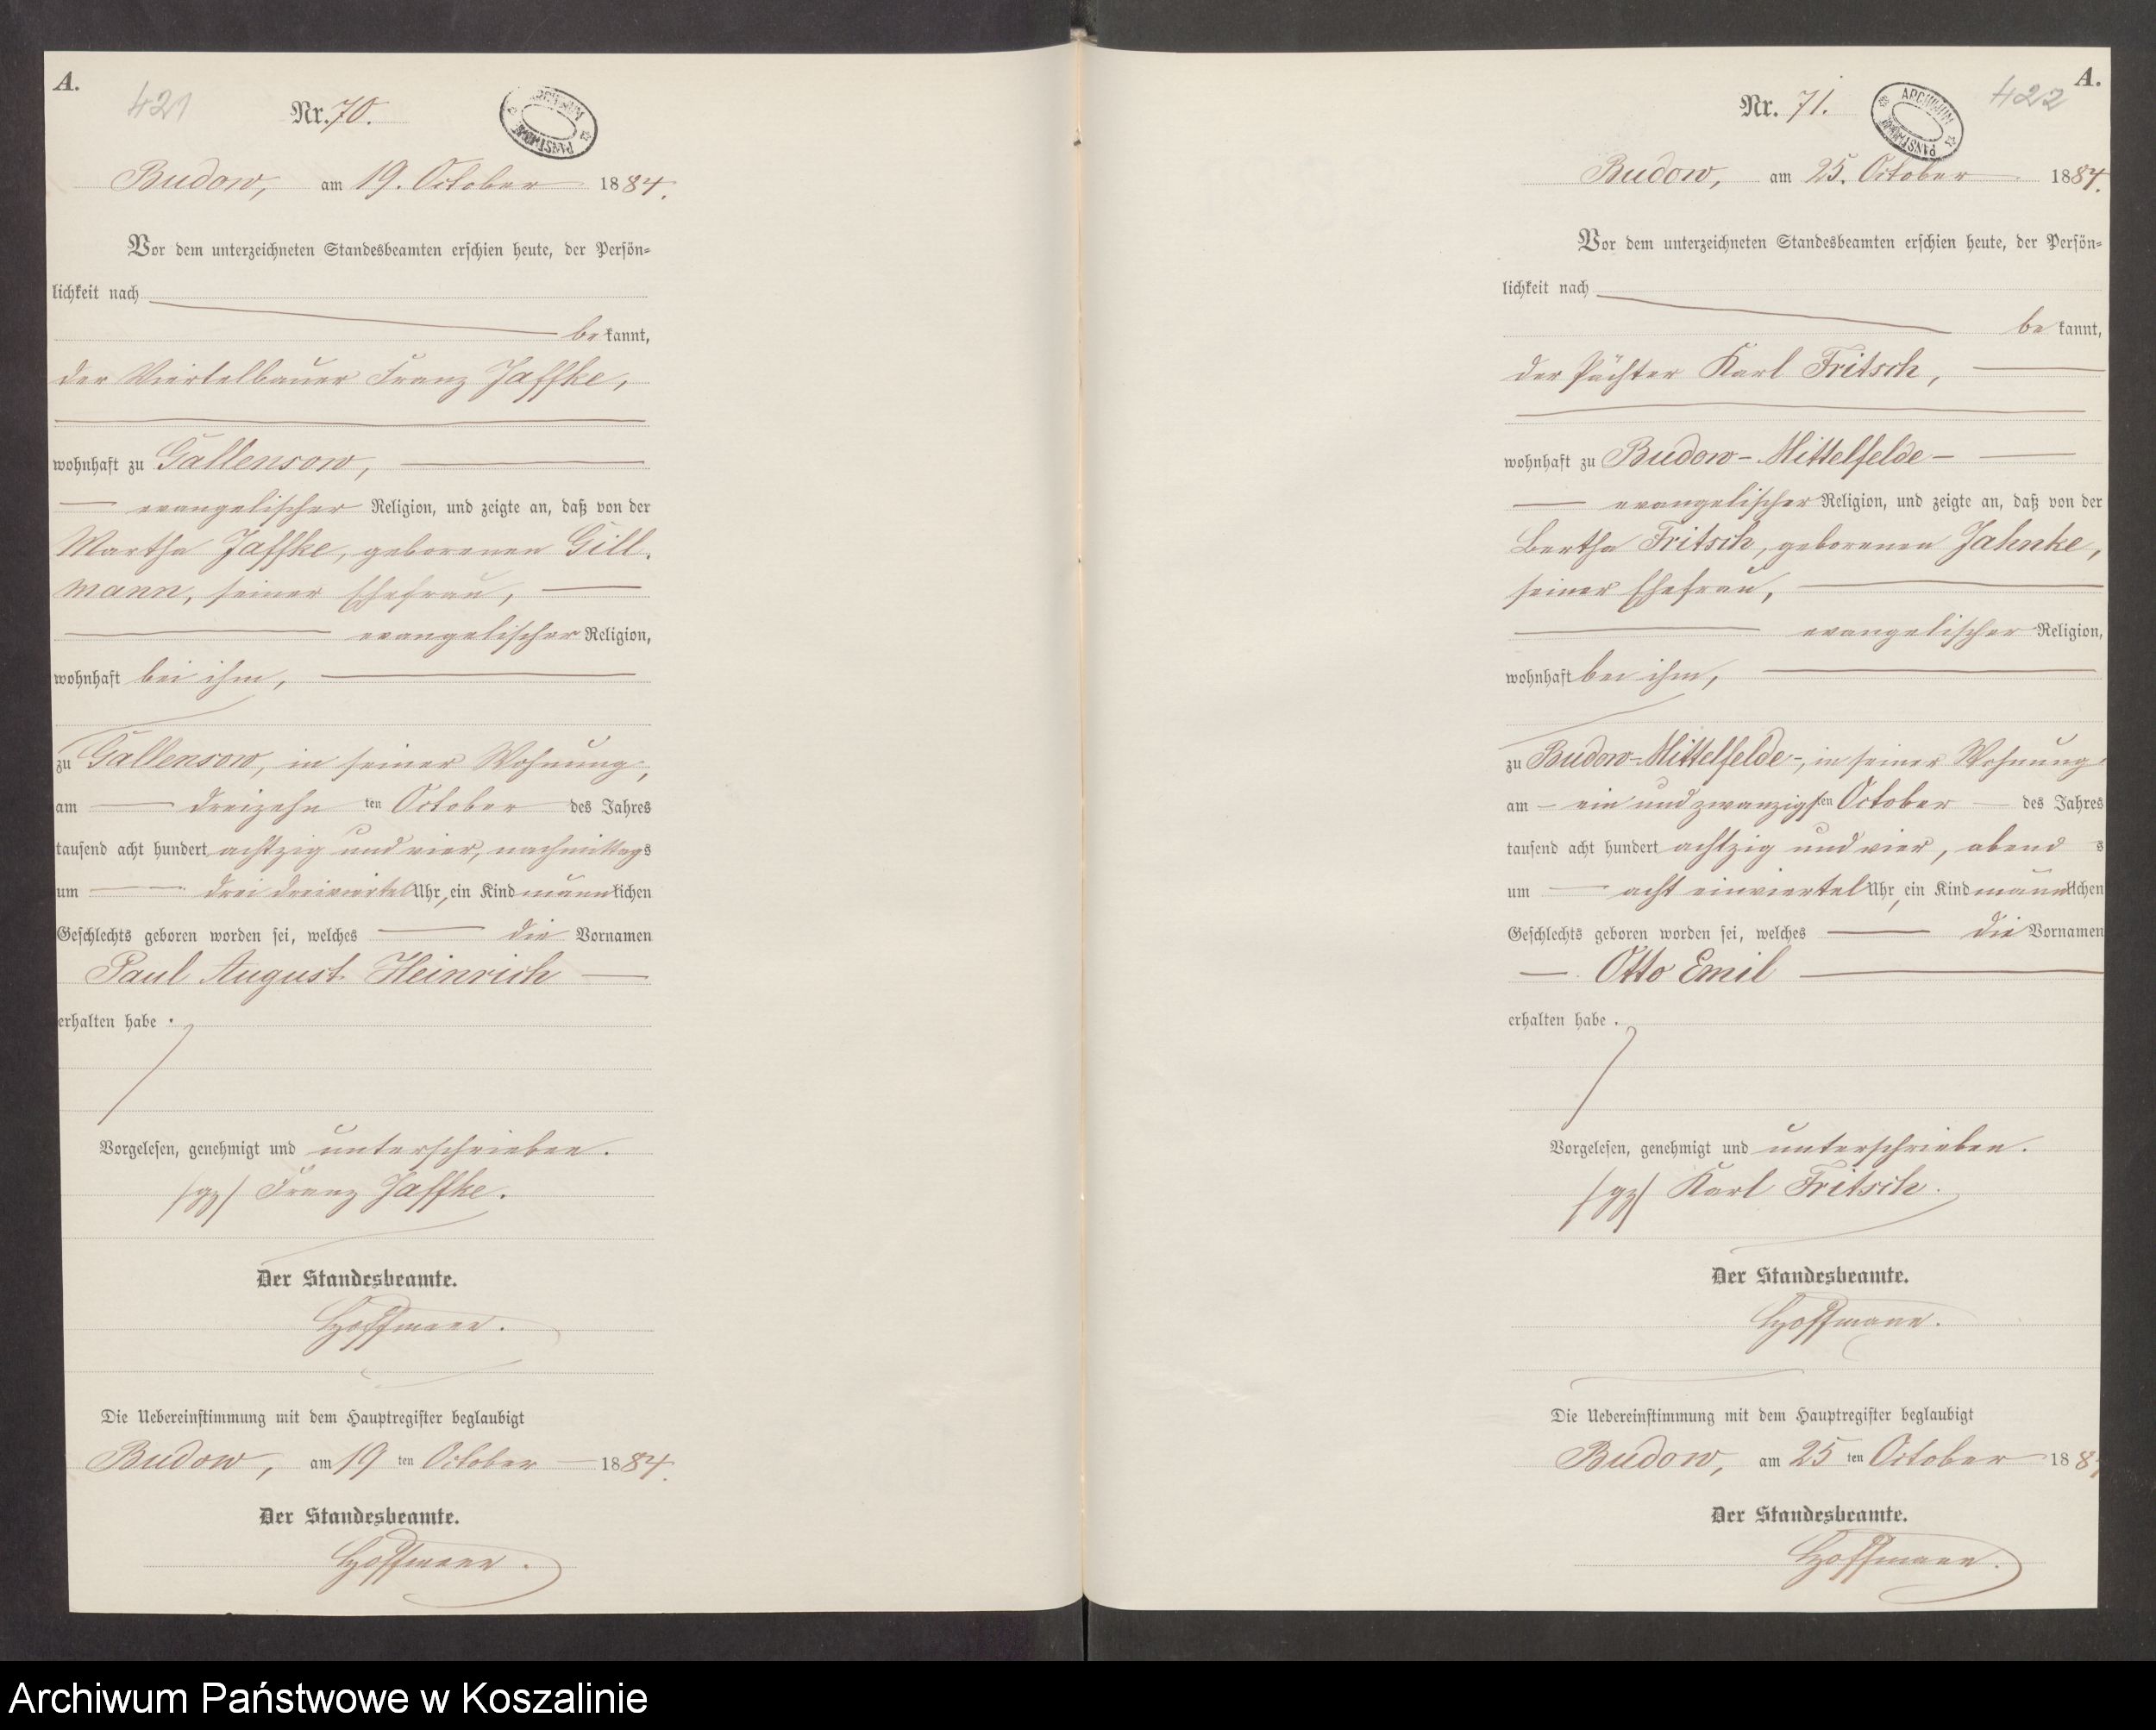 A.
421
Nr. 70.
ARCHIWUM PAŃSTWOWE
Budow, am 19. October 1884.
Vor dem unterzeichneten Standesbeamten erschien heute, der Persön-
lichkeit nach
bekannt,
der Viertelbauer Franz Jaffke,
wohnhaft zu Gallensow,
evangelischer Religion, und zeigte an, daß von der
Martha Jaffke, geborenen Gill-
mann, seiner Ehefrau,
evangelischer Religion,
wohnhaft bei ihm,
zu Gallensow, in seiner Wohnung,
am dreizehnten October des Jahres
tausend acht hundert achtzig und vier, nachmittags
um drei dreiviertel Uhr, ein Kind männlichen
Geschlechts geboren worden sei, welches die Vornamen
Paul August Heinrich
erhalten habe.
Vorgelesen, genehmigt und unterschrieben.
/gz/ Franz Jaffke.
Der Standesbeamte.
Hoffmann.
Die Uebereinstimmung mit dem Hauptregister beglaubigt
Budow, am 19ten October 1884.
Der Standesbeamte.
Hoffmann.
A.
422
Nr. 71.
ARCHIWUM PAŃSTWOWE
Budow, am 25. October 1884.
Vor dem unterzeichneten Standesbeamten erschien heute, der Persön-
lichkeit nach
bekannt,
der Pächter Karl Fritsch,
wohnhaft zu Budow-Mittelfelde-
evangelischer Religion, und zeigte an, daß von der
Bertha Fritsch, geborenen Jahnke,
seiner Ehefrau,
evangelischer Religion,
wohnhaft bei ihm,
zu Budow-Mittelfelde-, in seiner Wohnung,
am ein und zwanzigsten October des Jahres
tausend acht hundert achtzig und vier, abends
um acht einviertel Uhr, ein Kind männlichen
Geschlechts geboren worden sei, welches die Vornamen
Otto Emil
erhalten habe.
Vorgelesen, genehmigt und unterschrieben.
/gz/ Karl Fritsch.
Der Standesbeamte.
Hoffmann.
Die Uebereinstimmung mit dem Hauptregister beglaubigt
Budow, am 25ten October 1884
Der Standesbeamte.
Hoffmann.
Archiwum Państwowe w Koszalinie